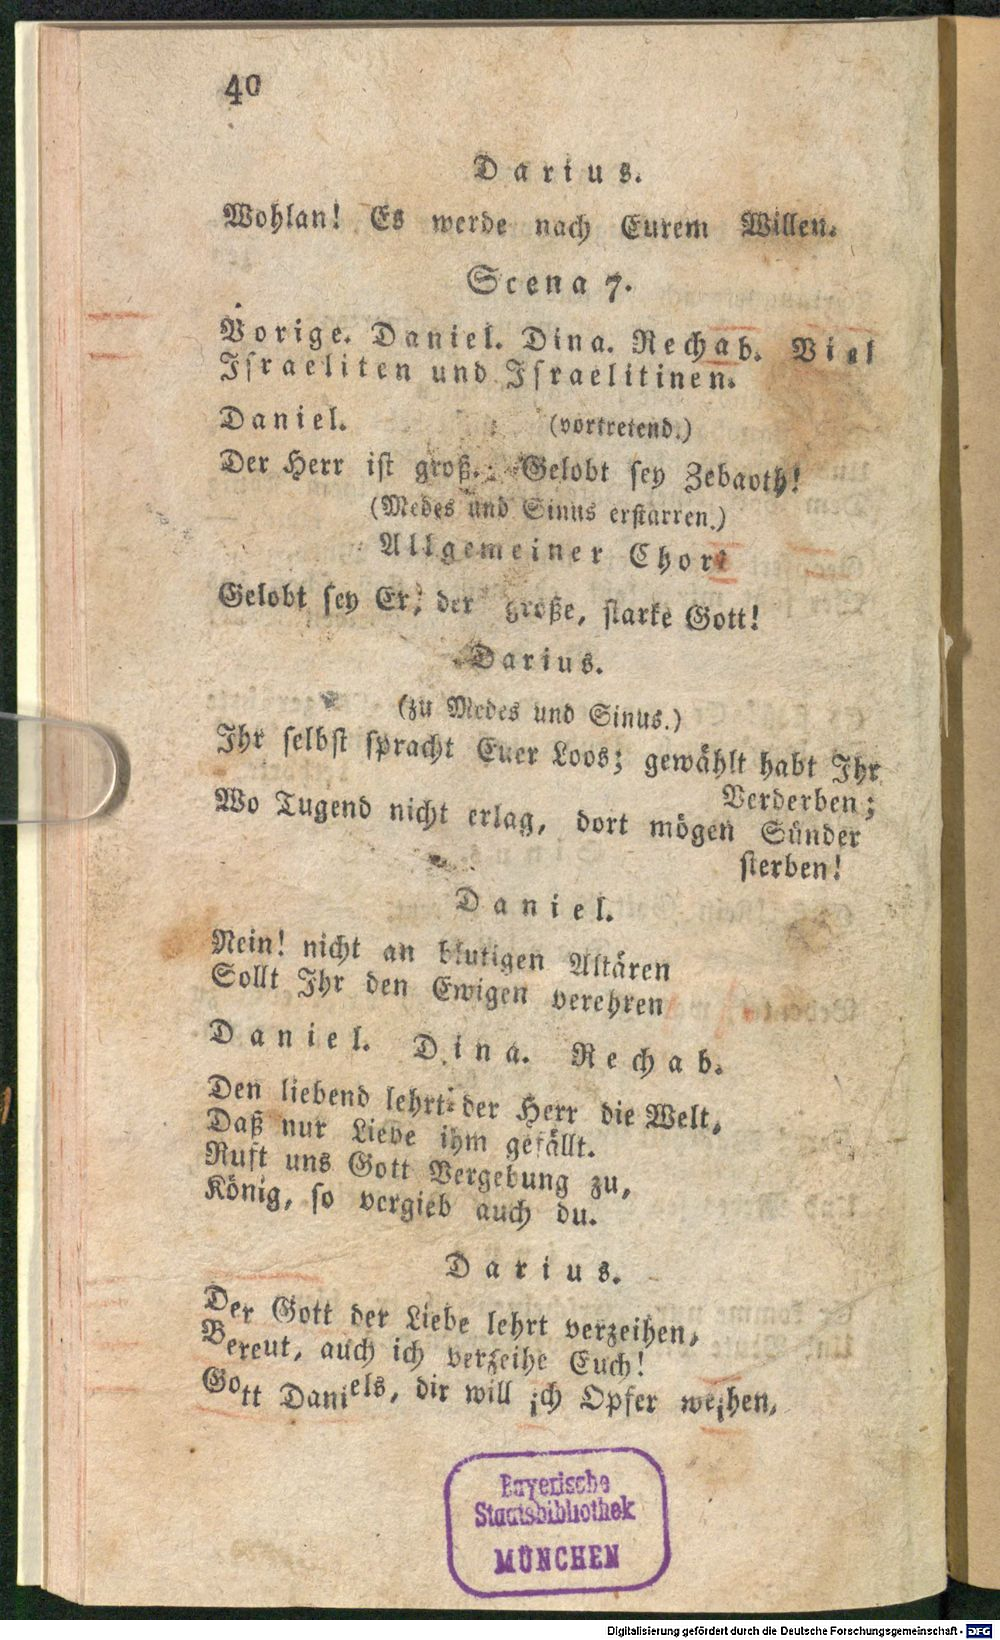 40
Darius.
Wohlan! Es werde nach Eurem Willen.
Scena 7.
Vorige. Daniel. Dina. Rechab. Viel
Israeliten und Israelitinen.
Daniel. (vortretend.)
Der Herr ist groß. Gelobt sey Zebaoth!
(Medes und Sinus erstarren.)
Allgemeiner Chor.
Gelobt sey Er, der große, starke Gott!
Darius.
(zu Medes und Sinus.)
Ihr selbst spracht Euer Loos; gewählt habt Ihr
Verderben;
Wo Tugend nicht erlag, dort mögen Sünder
sterben!
Daniel.
Nein! nicht an blutigen Altären
Sollt Ihr den Ewigen verehren
Daniel. Dina. Rechab.
Den liebend lehrt der Herr die Welt,
Daß nur Liebe ihm gefällt.
Ruft uns Gott Vergebung zu,
König, so vergieb auch du.
Darius.
Der Gott der Liebe lehrt verzeihen,
Bereut, auch ich verzeihe Euch!
Gott Daniels, dir will ich Opfer weihen,
Bayerische
Staatsbibliothek
MÜNCHEN
Digitalisierung gefördert durch die Deutsche Forschungsgemeinschaft - DFG